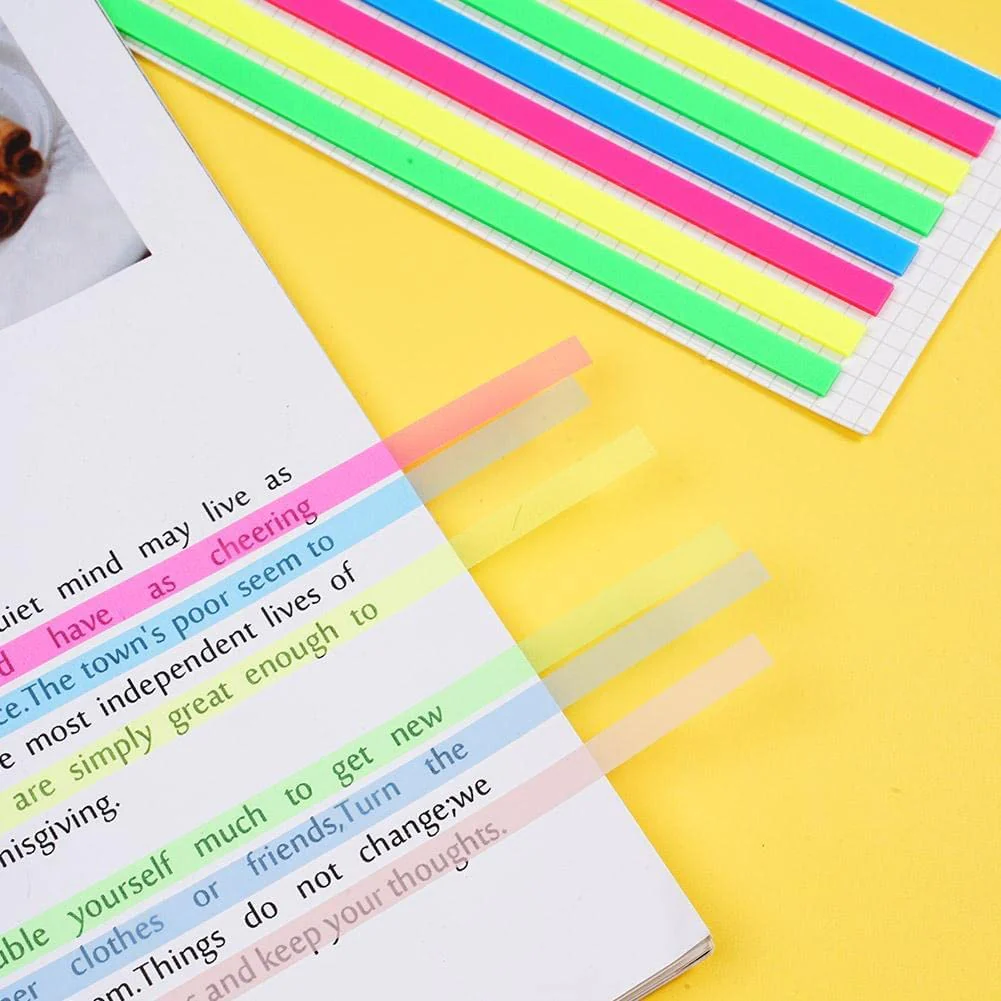 uiet mind may live as
d have as cheering
ce.The town's poor seem to
e most independent lives of
are simply great enough to
nisgiving.
uble yourself much to get new
her clothes or friends,Turn the
om.Things do not change;we
s and keep your thoughts.